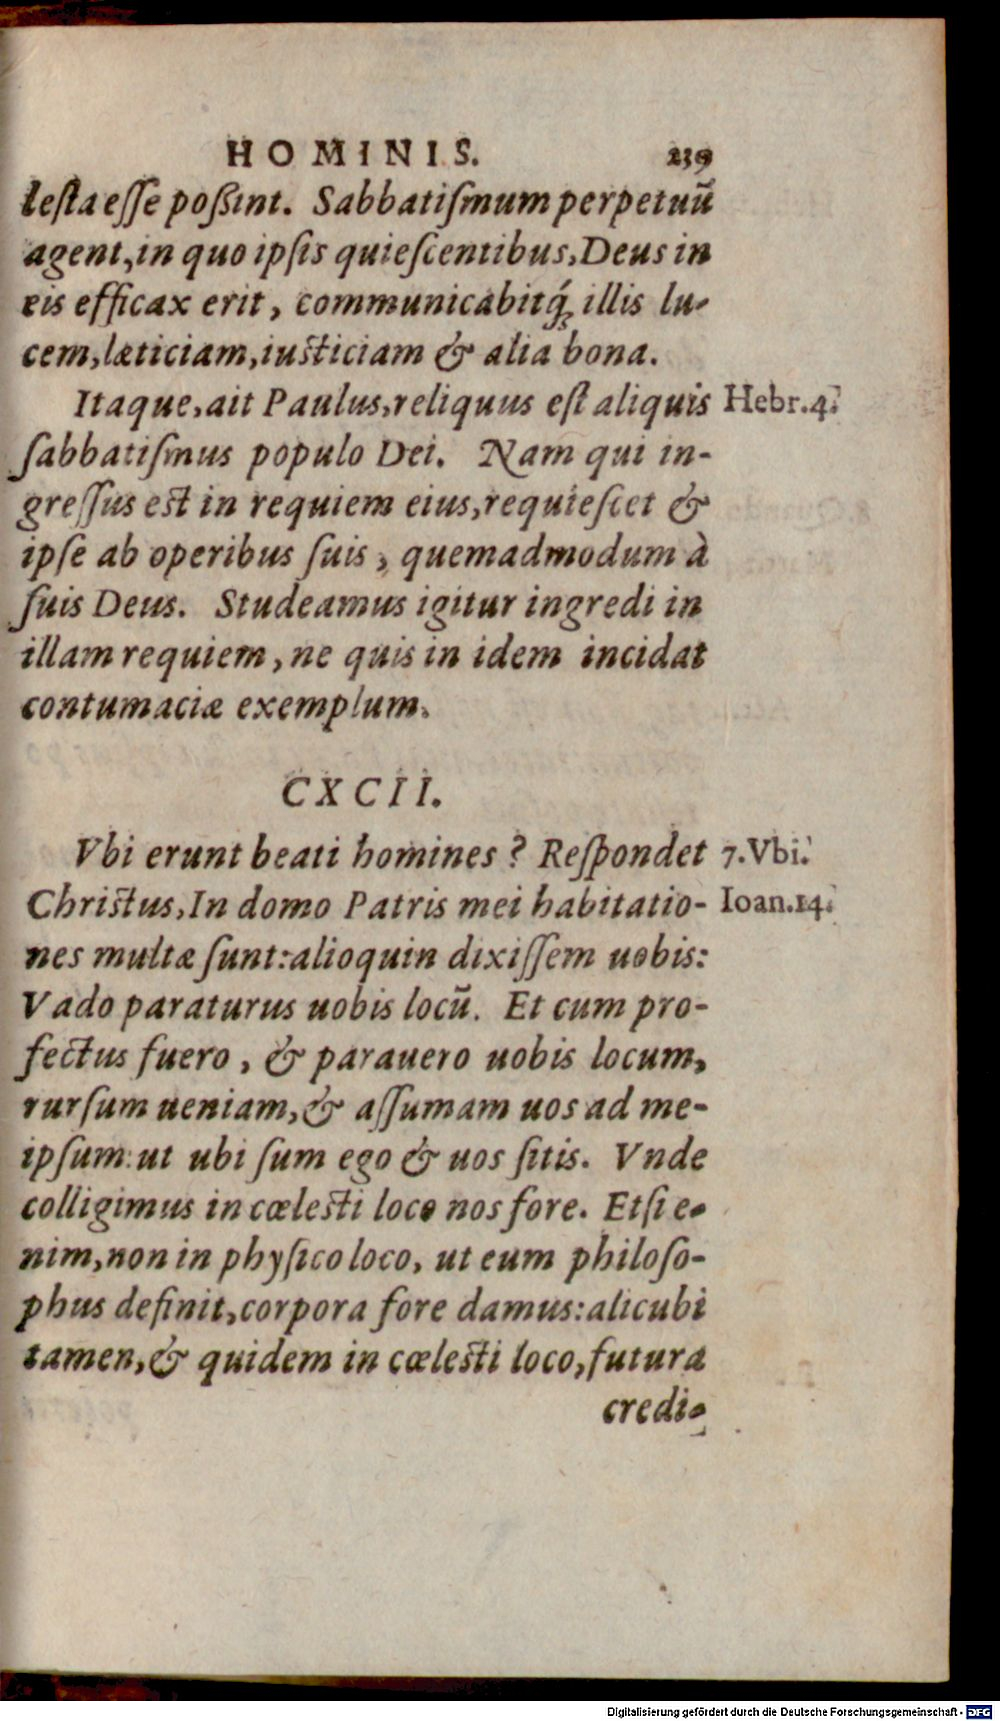 HOMINIS. 239
lesta esse poßint. Sabbatiſmum perpetuũ
agent, in quo ipſis quieſcentibus, Deus in
eis efficax erit, communicabitq́; illis lu-
cem, læticiam, iuſticiam & alia bona.
Itaque, ait Paulus, reliquus eſt aliquis Hebr.4.
ſabbatiſmus populo Dei. Nam qui in-
greſſus eſt in requiem eius, requieſcet &
ipſe ab operibus ſuis, quemadmodum à
ſuis Deus. Studeamus igitur ingredi in
illam requiem, ne quis in idem incidat
contumaciæ exemplum.
CXCII.
Vbi erunt beati homines? Reſpondet 7.Vbi.
Chriſtus, In domo Patris mei habitatio- Ioan.14.
nes multæ ſunt: alioquin dixiſſem uobis:
Vado paraturus uobis locũ. Et cum pro-
fectus fuero, & parauero uobis locum,
rurſum ueniam, & aſſumam uos ad me-
ipſum: ut ubi ſum ego & uos ſitis. Vnde
colligimus in cœleſti loco nos fore. Etſi e-
nim, non in phyſico loco, ut eum philoſo-
phus definit, corpora fore damus: alicubi
tamen, & quidem in cœleſti loco, futura
credi-
Digitalisierung gefördert durch die Deutsche Forschungsgemeinschaft - DFG